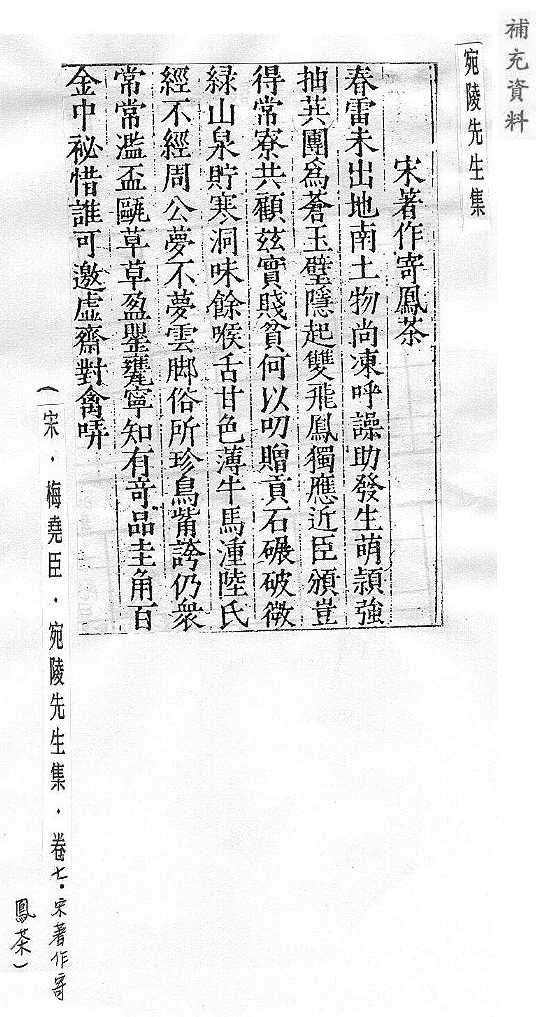 補充資料
宛陵先生集
宋著作寄鳳茶
春雷未出地南土物尚凍呼譟助發生萌穎強
抽萁團爲蒼玉璧隱起雙飛鳳獨應近臣頒豈
得常寮共顧茲實賤貧何以叨贈貢石碾破微
緑山泉貯寒洞味餘喉舌甘色薄牛馬湩陸氏
經不經周公夢不夢雲脚俗所珍鳥觜誇仍衆
常常濫盃甌草草盈罌甕寧知有竒品圭角百
金中祕惜誰可邀虛齋對禽哢
(宋．梅堯臣．宛陵先生集．卷七．宋著作寄
鳳茶)